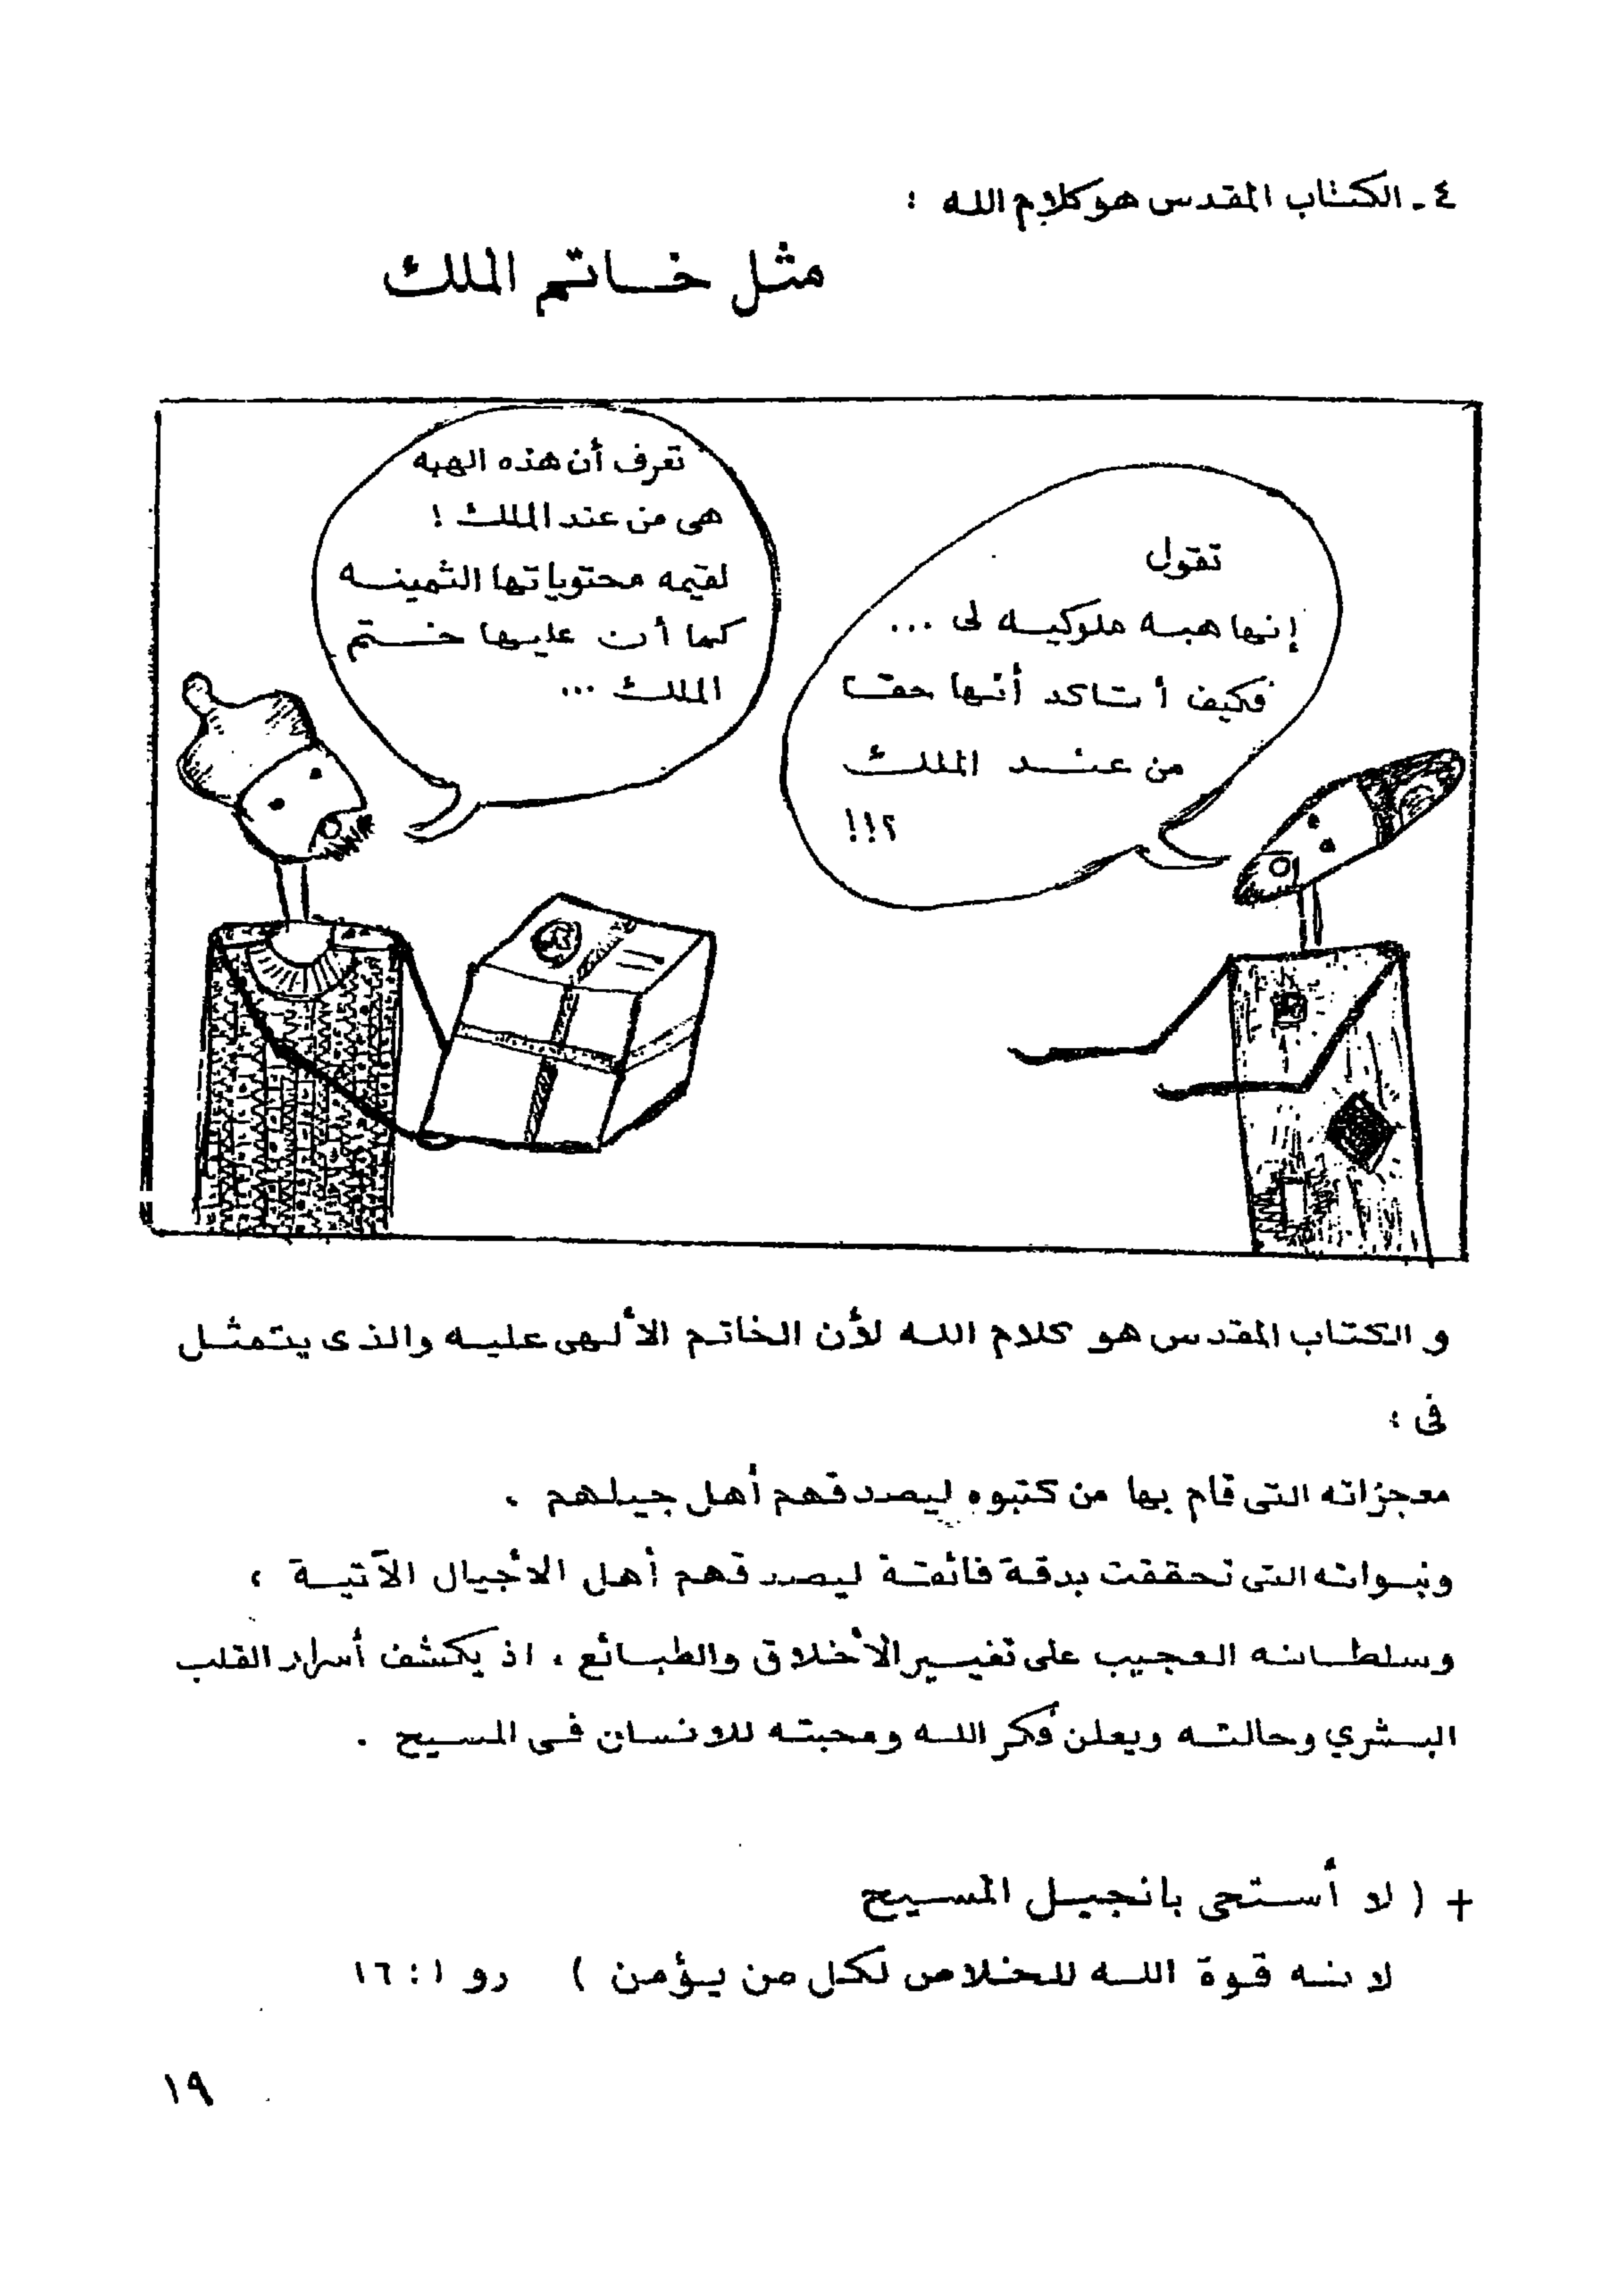 ٤ - الكتاب المقدس هو كلام الله :
مثل خاتم الملك
تقول
إنها هبه ملوكيه لى ...
فكيف أتاكد أنها حقا
من عند الملك
؟!!
تعرف أن هذه الهبه
هى من عند الملك !
لقيمه محتوياتها الثمينه
كما أن عليها ختم
الملك ...
و الكتاب المقدس هو كلام الله لأن الخاتم الألهى عليه والذى يتمثل
فى :
معجزاته التى قام بها من كتبوه ليصدقهم أهل جيلهم .
ونبواته التى تحققت بدقة فائقة ليصدقهم أهل الأجيال الآتية ،
وسلطانه العجيب على تغيير الأخلاق والطبائع ، اذ يكشف أسرار القلب
البشري وحالته ويعلن فكر الله ومحبته للانسان فى المسيح .
+ ( لا أستحى بانجيل المسيح
لانه قوة الله للخلاص لكل من يؤمن ) رو ١ : ١٦
١٩